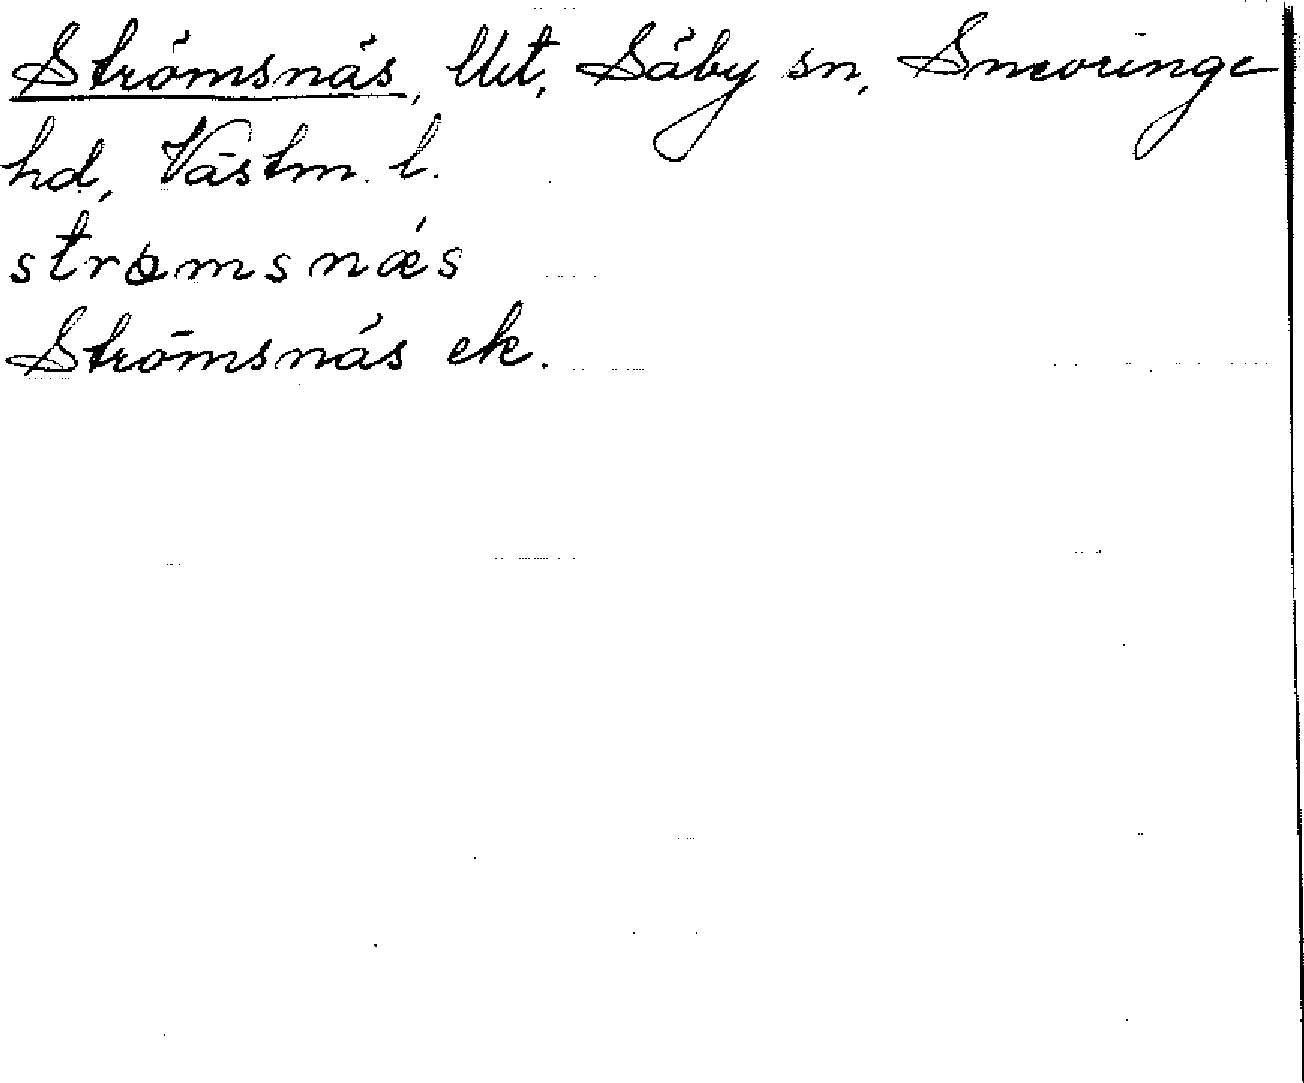 Strömsnäs, Säby sn, Snevringe
hd, Västm. l.
strømsnǽs
Strömsnäs ek.